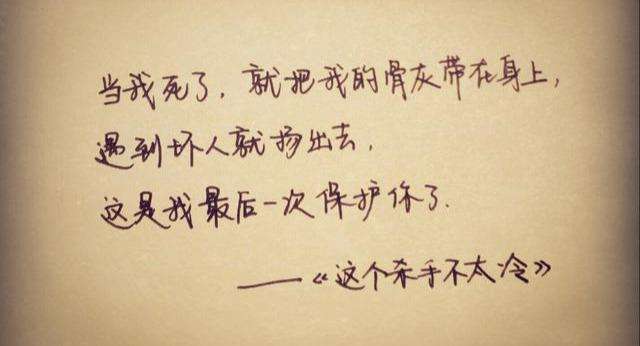 当我死了，就把我的骨灰带在身上，
遇到坏人就扬出去，
这是我最后一次保护你了.
——《这个杀手不太冷》